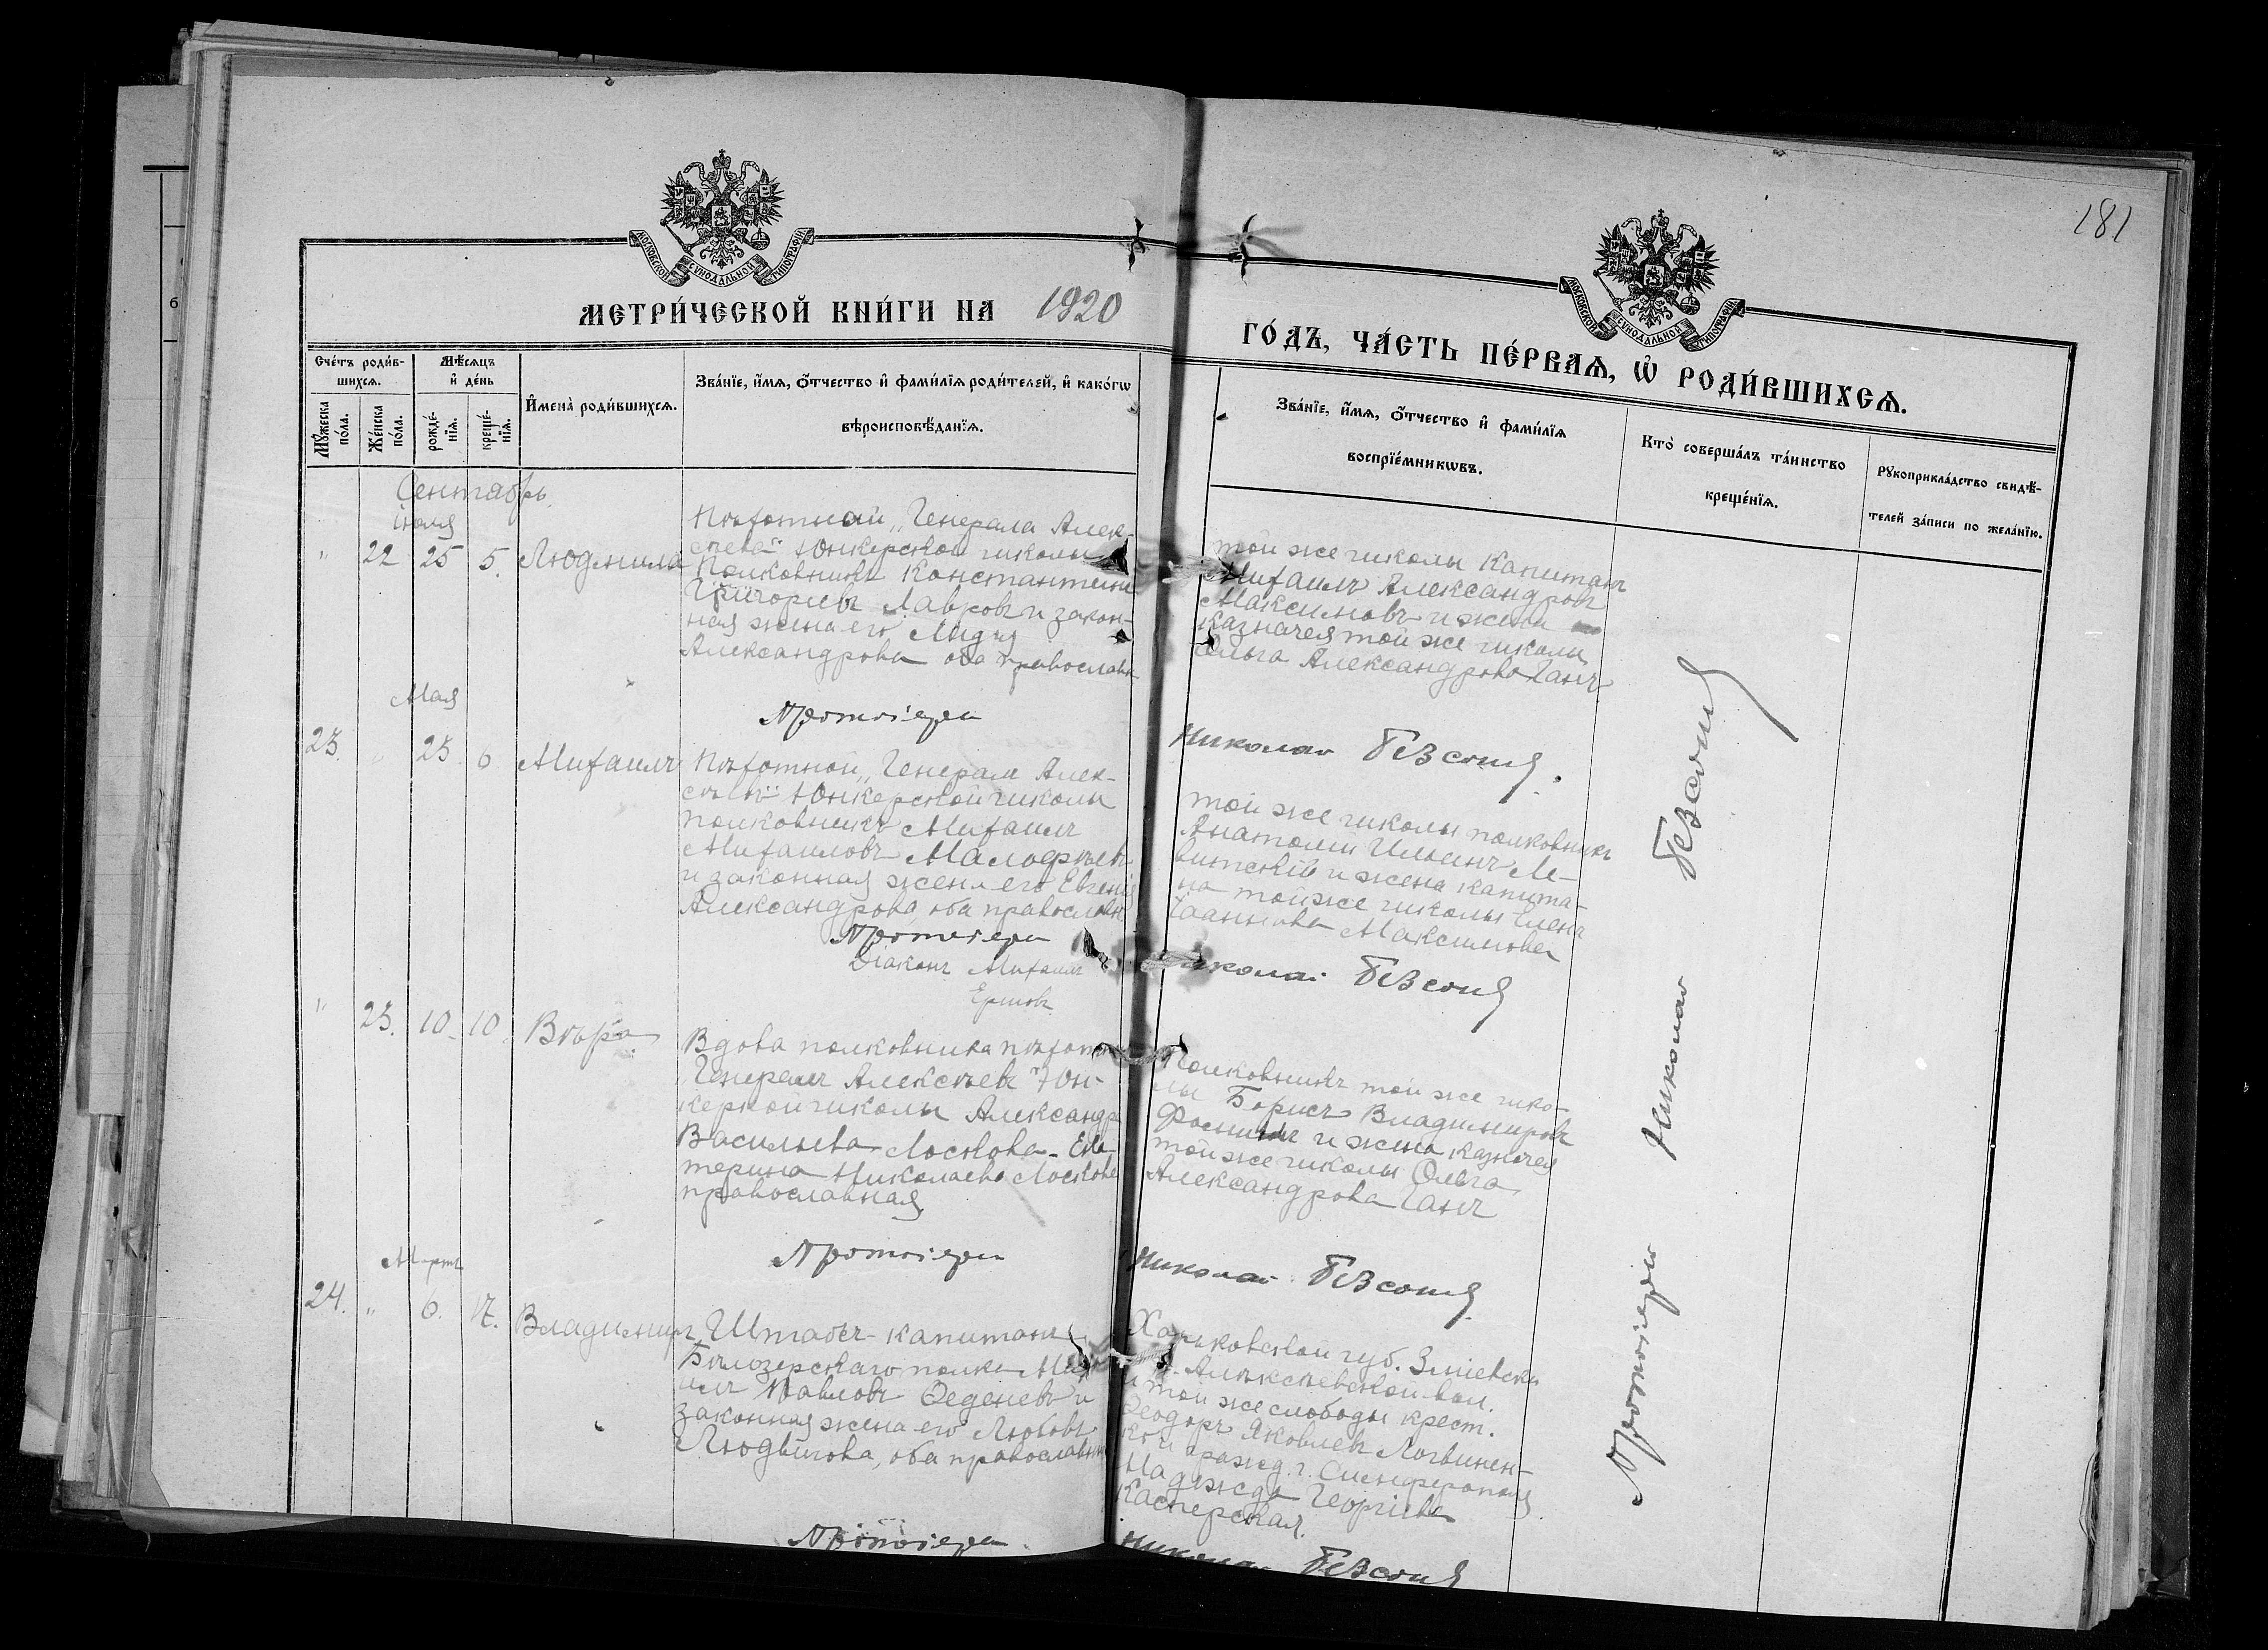 181
МОСКОВСКОЙ СѴНОДАЛЬНОЙ ТИПОГРАФІИ
МЕТРИ́ЧЕСКОЙ КНИ́ГИ НА 1920
МОСКОВСКОЙ СѴНОДАЛЬНОЙ ТИПОГРАФІИ
ГО́ДЪ, ЧА́СТЬ ПЕ́РВАѦ, Ѡ҆ РОДИ́ВШИХСѦ.
Сче́тъ роди́в-
шихсѧ.
Мꙋ́жеска по́ла.
Же́нска по́ла.
Мѣ́сѧцъ
и҆ де́нь
рожде́-
нїѧ.
креще́-
нїѧ.
И҆мена̀ роди́вшихсѧ.
Зва́нїе, и҆́мѧ, ѻ҆́тчество и҆ фами́лїѧ роди́телей, и҆ како́гѡ
вѣроисповѣ́данїѧ.
Зва́нїе, и҆́мѧ, ѻ҆́тчество и҆ фами́лїѧ
воспрїе́мникѡвъ.
Кто̀ соверша́лъ та́инство
креще́нїѧ.
Рꙋкоприкла́дство свидѣ́-
телей за́писи по жела́нїю.
Сентябрь
Іюля
" 22 25 5. Людмила
Пѣхотной „Генерала Алек-
сѣева" Юнкерской школы
Полковникъ Константинъ
Григорьевъ Лавровъ и закон-
ная жена его Лидія
Александрова оба православн.
той же школы Капитанъ
Михаилъ Александровъ
Максимовъ и жена
казначея той же школы
Ольга Александрова Ганъ
Протоіерей Николай Безсоновъ.
Мая
23. " 23 6 Михаилъ
Пѣхотной „Генерала Алек-
сѣева" Юнкерской школы
полковникъ Михаилъ
Михаиловъ Малофѣевъ
и законная жена его Евгенія
Александрова, оба православн
той же школы полковникъ
Анатолій Ильинъ Ле-
витскій и жена капита-
на той же школы Елена
Іоаннова Максимова
Протоіерей Николай Безсоновъ
Діаконъ Михаилъ
Ершовъ
" 23. 10. 10. Вѣра
Вдова полковника пѣхотн
„Генерала Алексѣева" Юн-
керской школы Александра
Васильева Лоскова - Ека
терина Николаева Лоскова
православная
Полковникъ той же шко-
лы Борисъ Владиміровъ
и жена казначея
той же школы Ольга
Александрова Ганъ
Протоіерей Николай Безсоновъ.
Мартъ
24. " 6. 17. Владиміръ
Штабсъ-капитанъ
Бѣлозерскаго полка Миха
илъ Павловъ Феденевъ и
законная жена его Любовь
Людвигова, оба православны
Харьковской губ. Зміевска
Алексѣевской вол.
и той же слободы крест.
Ѳеодоръ Яковлевъ Логвинен-
ко и гражд. г. Симферополя
Надежда Георгіева
Касперская.
Протоіерей Николай Безсоновъ
Протоіерей Николай Безсоновъ